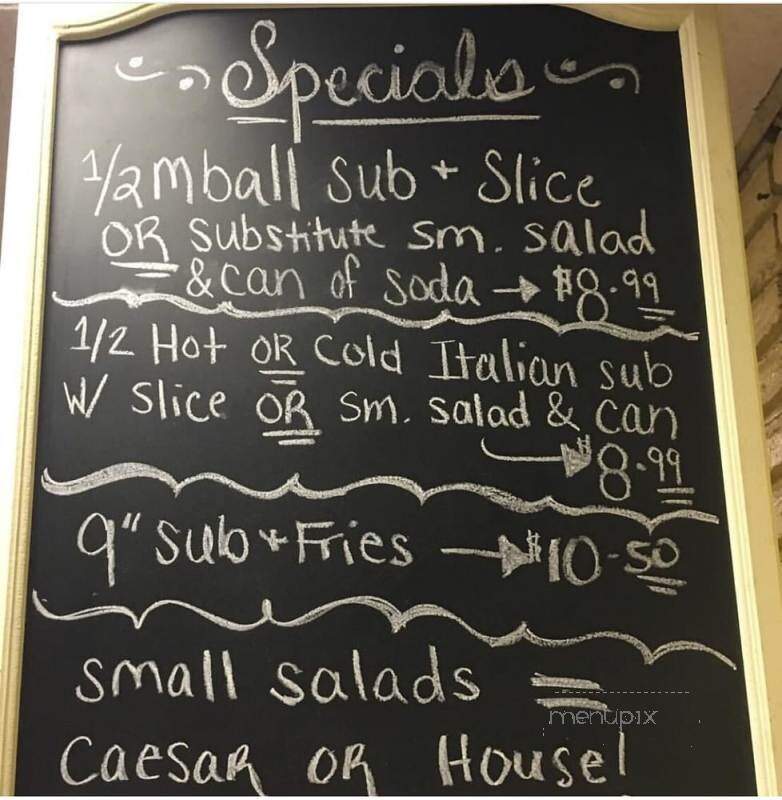 Specials
1/2 mball sub + Slice
OR substitute sm. salad
& can of soda → $8.99
1/2 Hot OR Cold Italian sub
W/ slice OR sm. salad & can
→ $8.99
9" sub + Fries → $10.50
small salads =
Caesar or House!
menupix